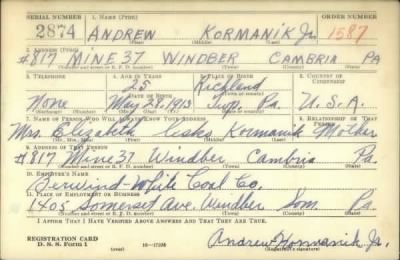 SERIAL NUMBER 1. NAME (Print) ORDER NUMBER
2874 ANDREW KORMANIK Jr. 1587
(First) (Middle) (Last)
2. ADDRESS (Print)
#817 MINE 37 WINDBER CAMBRIA PA
(Number and street or R. F. D. number) (Town) (County) (State)
3. TELEPHONE 4. AGE IN YEARS 5. PLACE OF BIRTH 6. COUNTRY OF CITIZENSHIP
25 Richland
DATE OF BIRTH (Town or county)
None May 28, 1915 Twp. Pa. U.S.A.
(Exchange) (Number) (Mo.) (Day) (Yr.) (State or country)
7. NAME OF PERSON WHO WILL ALWAYS KNOW YOUR ADDRESS 8. RELATIONSHIP OF THAT PERSON
Mrs. Elizabeth Kormanik Mother
(Mr., Mrs., Miss) (First) (Middle) (Last)
9. ADDRESS OF THAT PERSON
#817 Mine 37 Windber Cambria Pa.
(Number and street or R. F. D. number) (Town) (County) (State)
10. EMPLOYER'S NAME
Berwind-White Coal Co.
11. PLACE OF EMPLOYMENT OR BUSINESS
1405 Somerset Ave. Windber Som. Pa.
(Number and street or R. F. D. number) (Town) (County) (State)
I AFFIRM THAT I HAVE VERIFIED ABOVE ANSWERS AND THAT THEY ARE TRUE.
REGISTRATION CARD
D. S. S. Form 1 (over) 16—17105 Andrew Kormanik Jr.
(Registrant's signature)